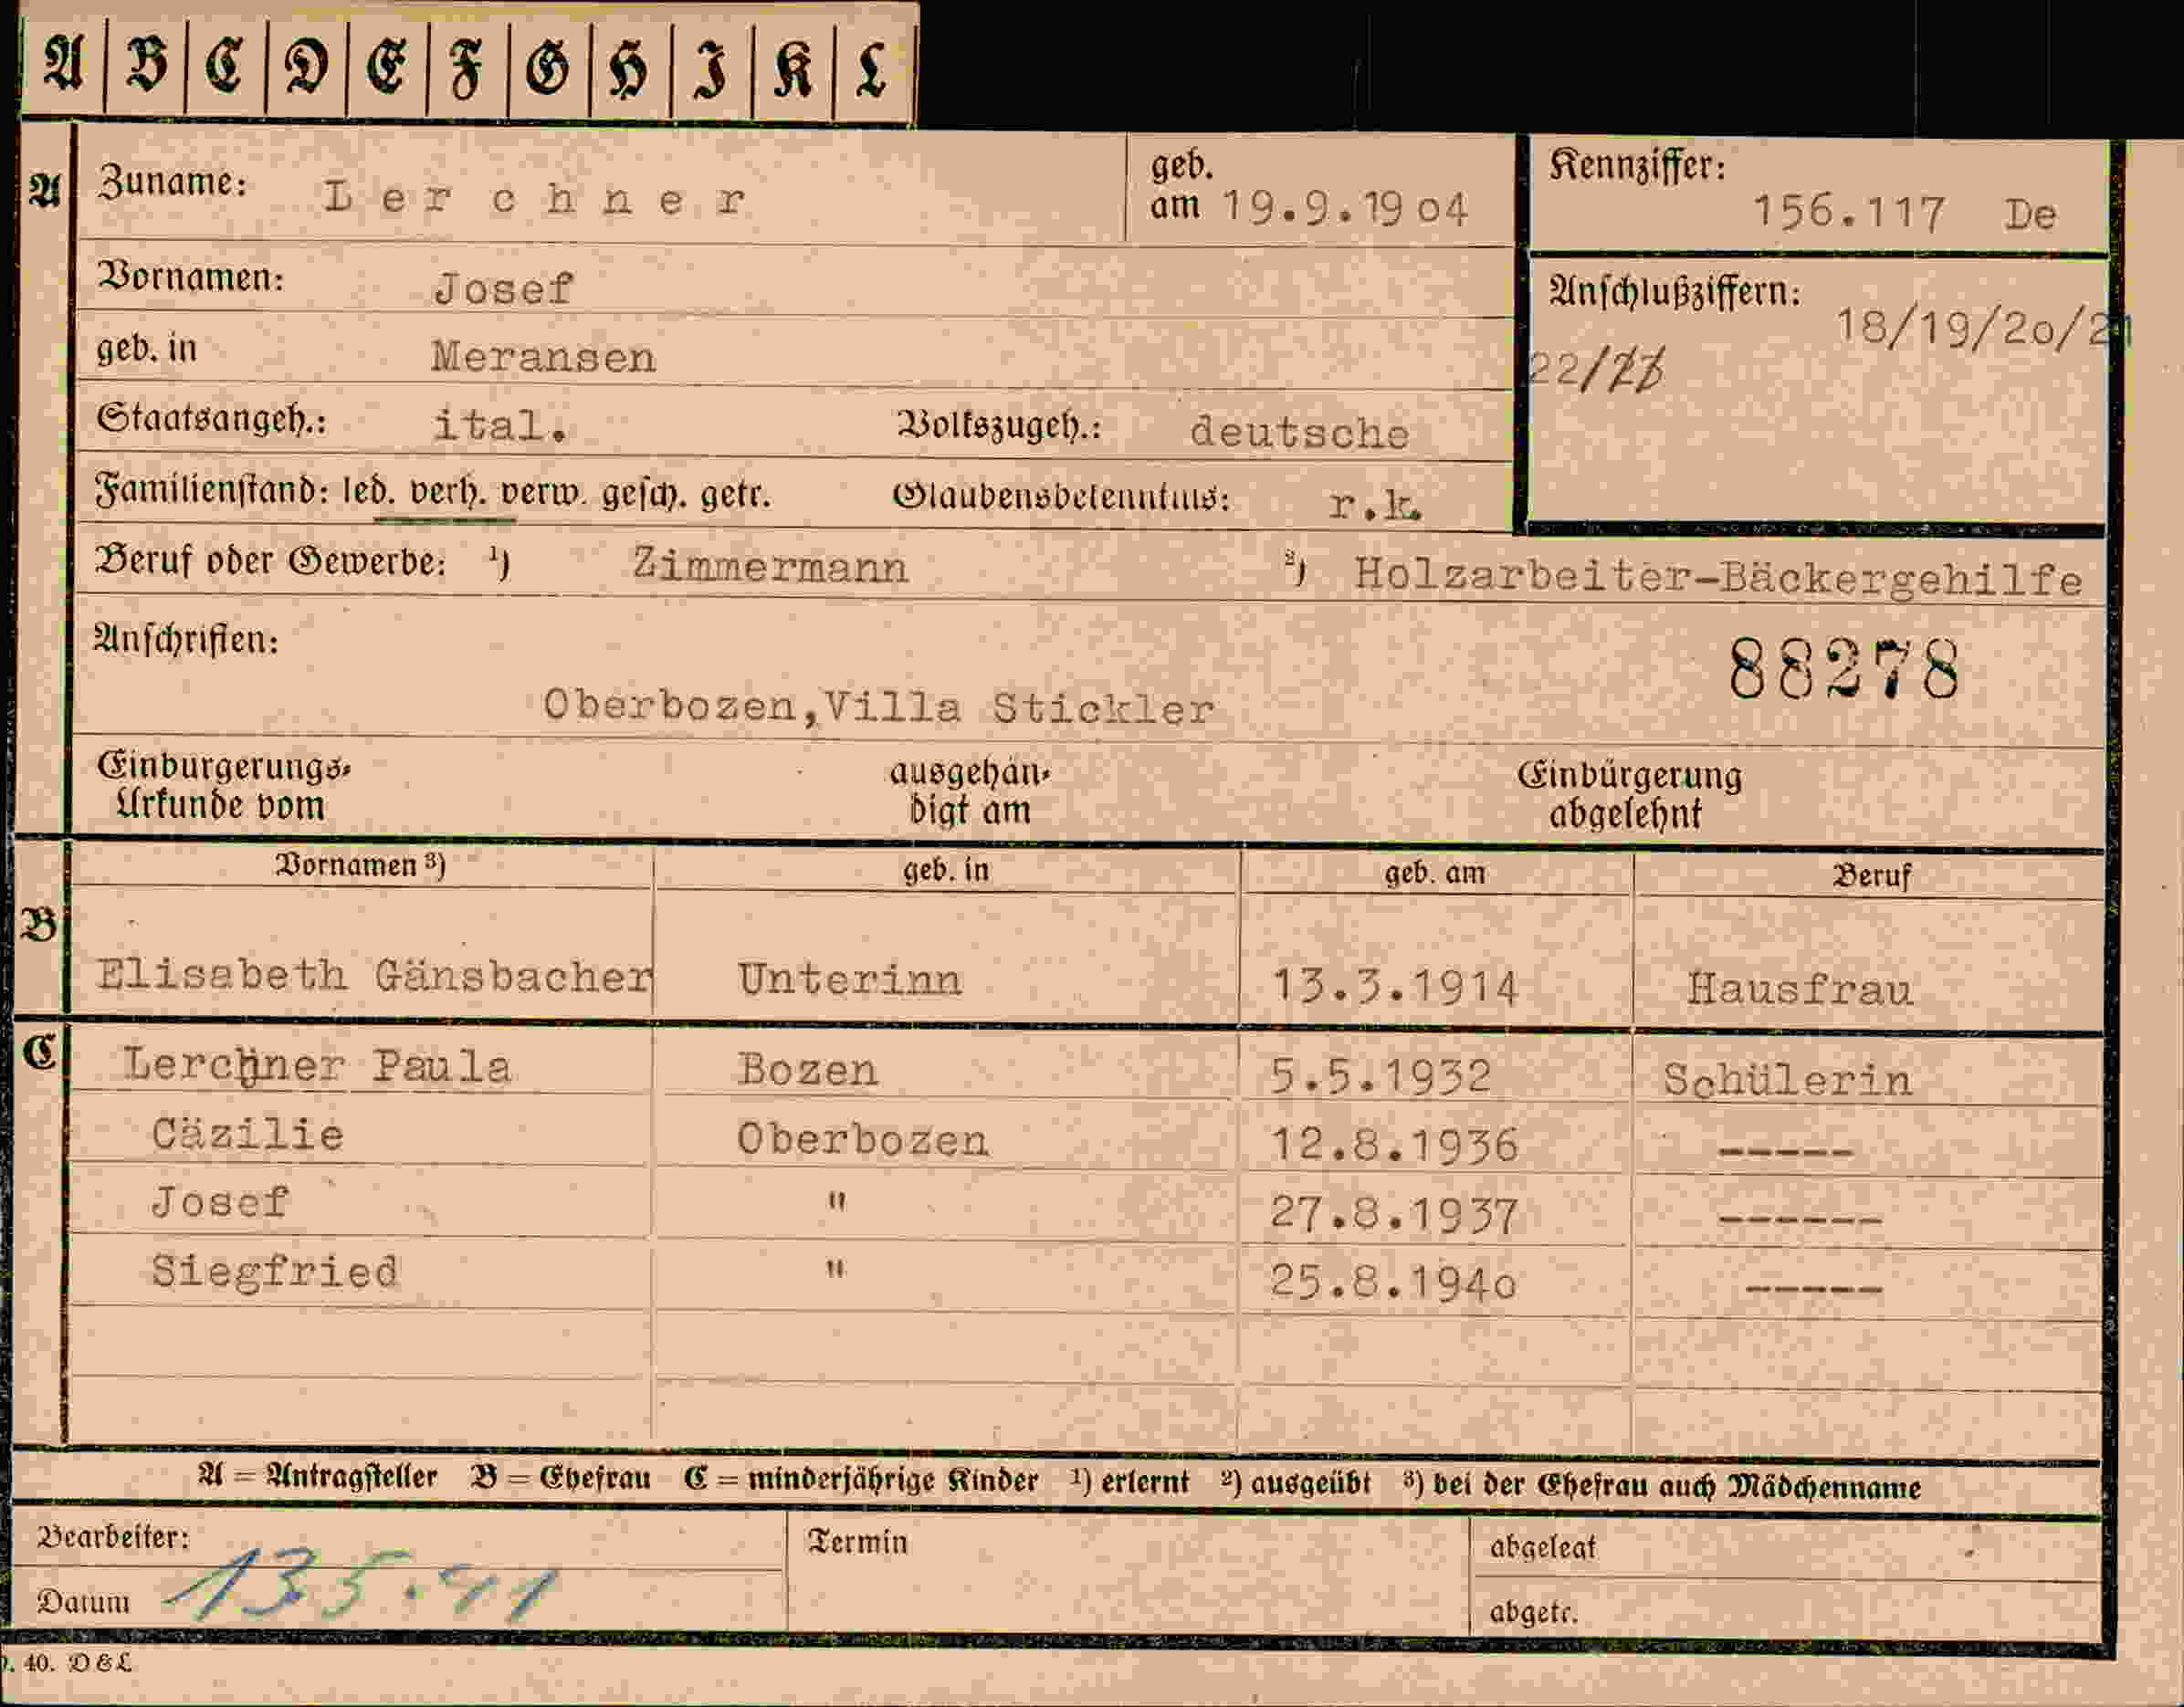 A B C D E F G H I K L
A Zuname: Lerchner geb. am 19.9.1904 Kennziffer: 156.117 De
Vornamen: Josef Anschlußziffern: 18/19/20/21
geb. in Meransen 22/
Staatsangeh.: ital. Volkszugeh.: deutsche
Familienstand: led. verh. verw. gesch. getr. Glaubensbekenntnis: r.k.
Beruf oder Gewerbe: 1) Zimmermann 2) Holzarbeiter-Bäckergehilfe
Anschriften: 88278
Oberbozen,Villa Stickler
Einbürgerungs- ausgehän- Einbürgerung
Urkunde vom digt am abgelehnt
Vornamen 3) geb. in geb. am Beruf
B
Elisabeth Gänsbacher Unterinn 13.3.1914 Hausfrau
C Lerchner Paula Bozen 5.5.1932 Schülerin
Cäzilie Oberbozen 12.8.1936 -----
Josef " 27.8.1937 ------
Siegfried " 25.8.1940 -----
A = Antragsteller B = Ehefrau C = minderjährige Kinder 1) erlernt 2) ausgeübt 3) bei der Ehefrau auch Mädchenname
Bearbeiter: Termin abgelegt
Datum 13 5.41 abgetr.
. 40. D & L